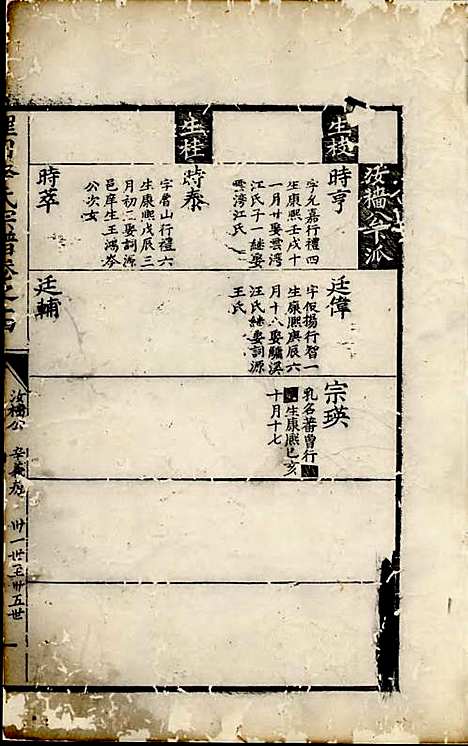 汝檣公下派
生枝
時亨
字允嘉行禮四
生康熙壬戌十
一月廿娶雲湾
江氏子一継娶
雲湾江氏
生桂
時泰
字眉山行禮六
生康熙戊辰三
月初二娶詞源
邑庠生王鴻岺
公次女
時萃
廷偉
字伋揚行智一
生康熙庚辰六
月十八娶騸溪
汪氏継娶詞源
王氏
廷輔
宗瑛
乳名蕃曾行
生康熙己亥
十月十七
氏宗譜卷之四
汝檣公
卅一世至卅五世